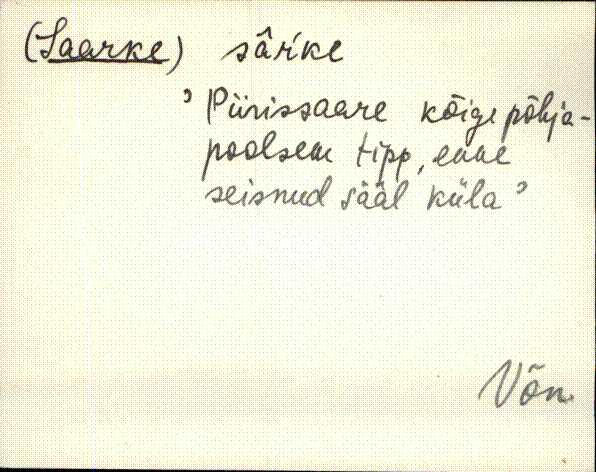 (Saarke) sâŕke
’Piirissaare kõige põhja-
poolsem tipp, enne
seisnud sääl küla’
Võn.